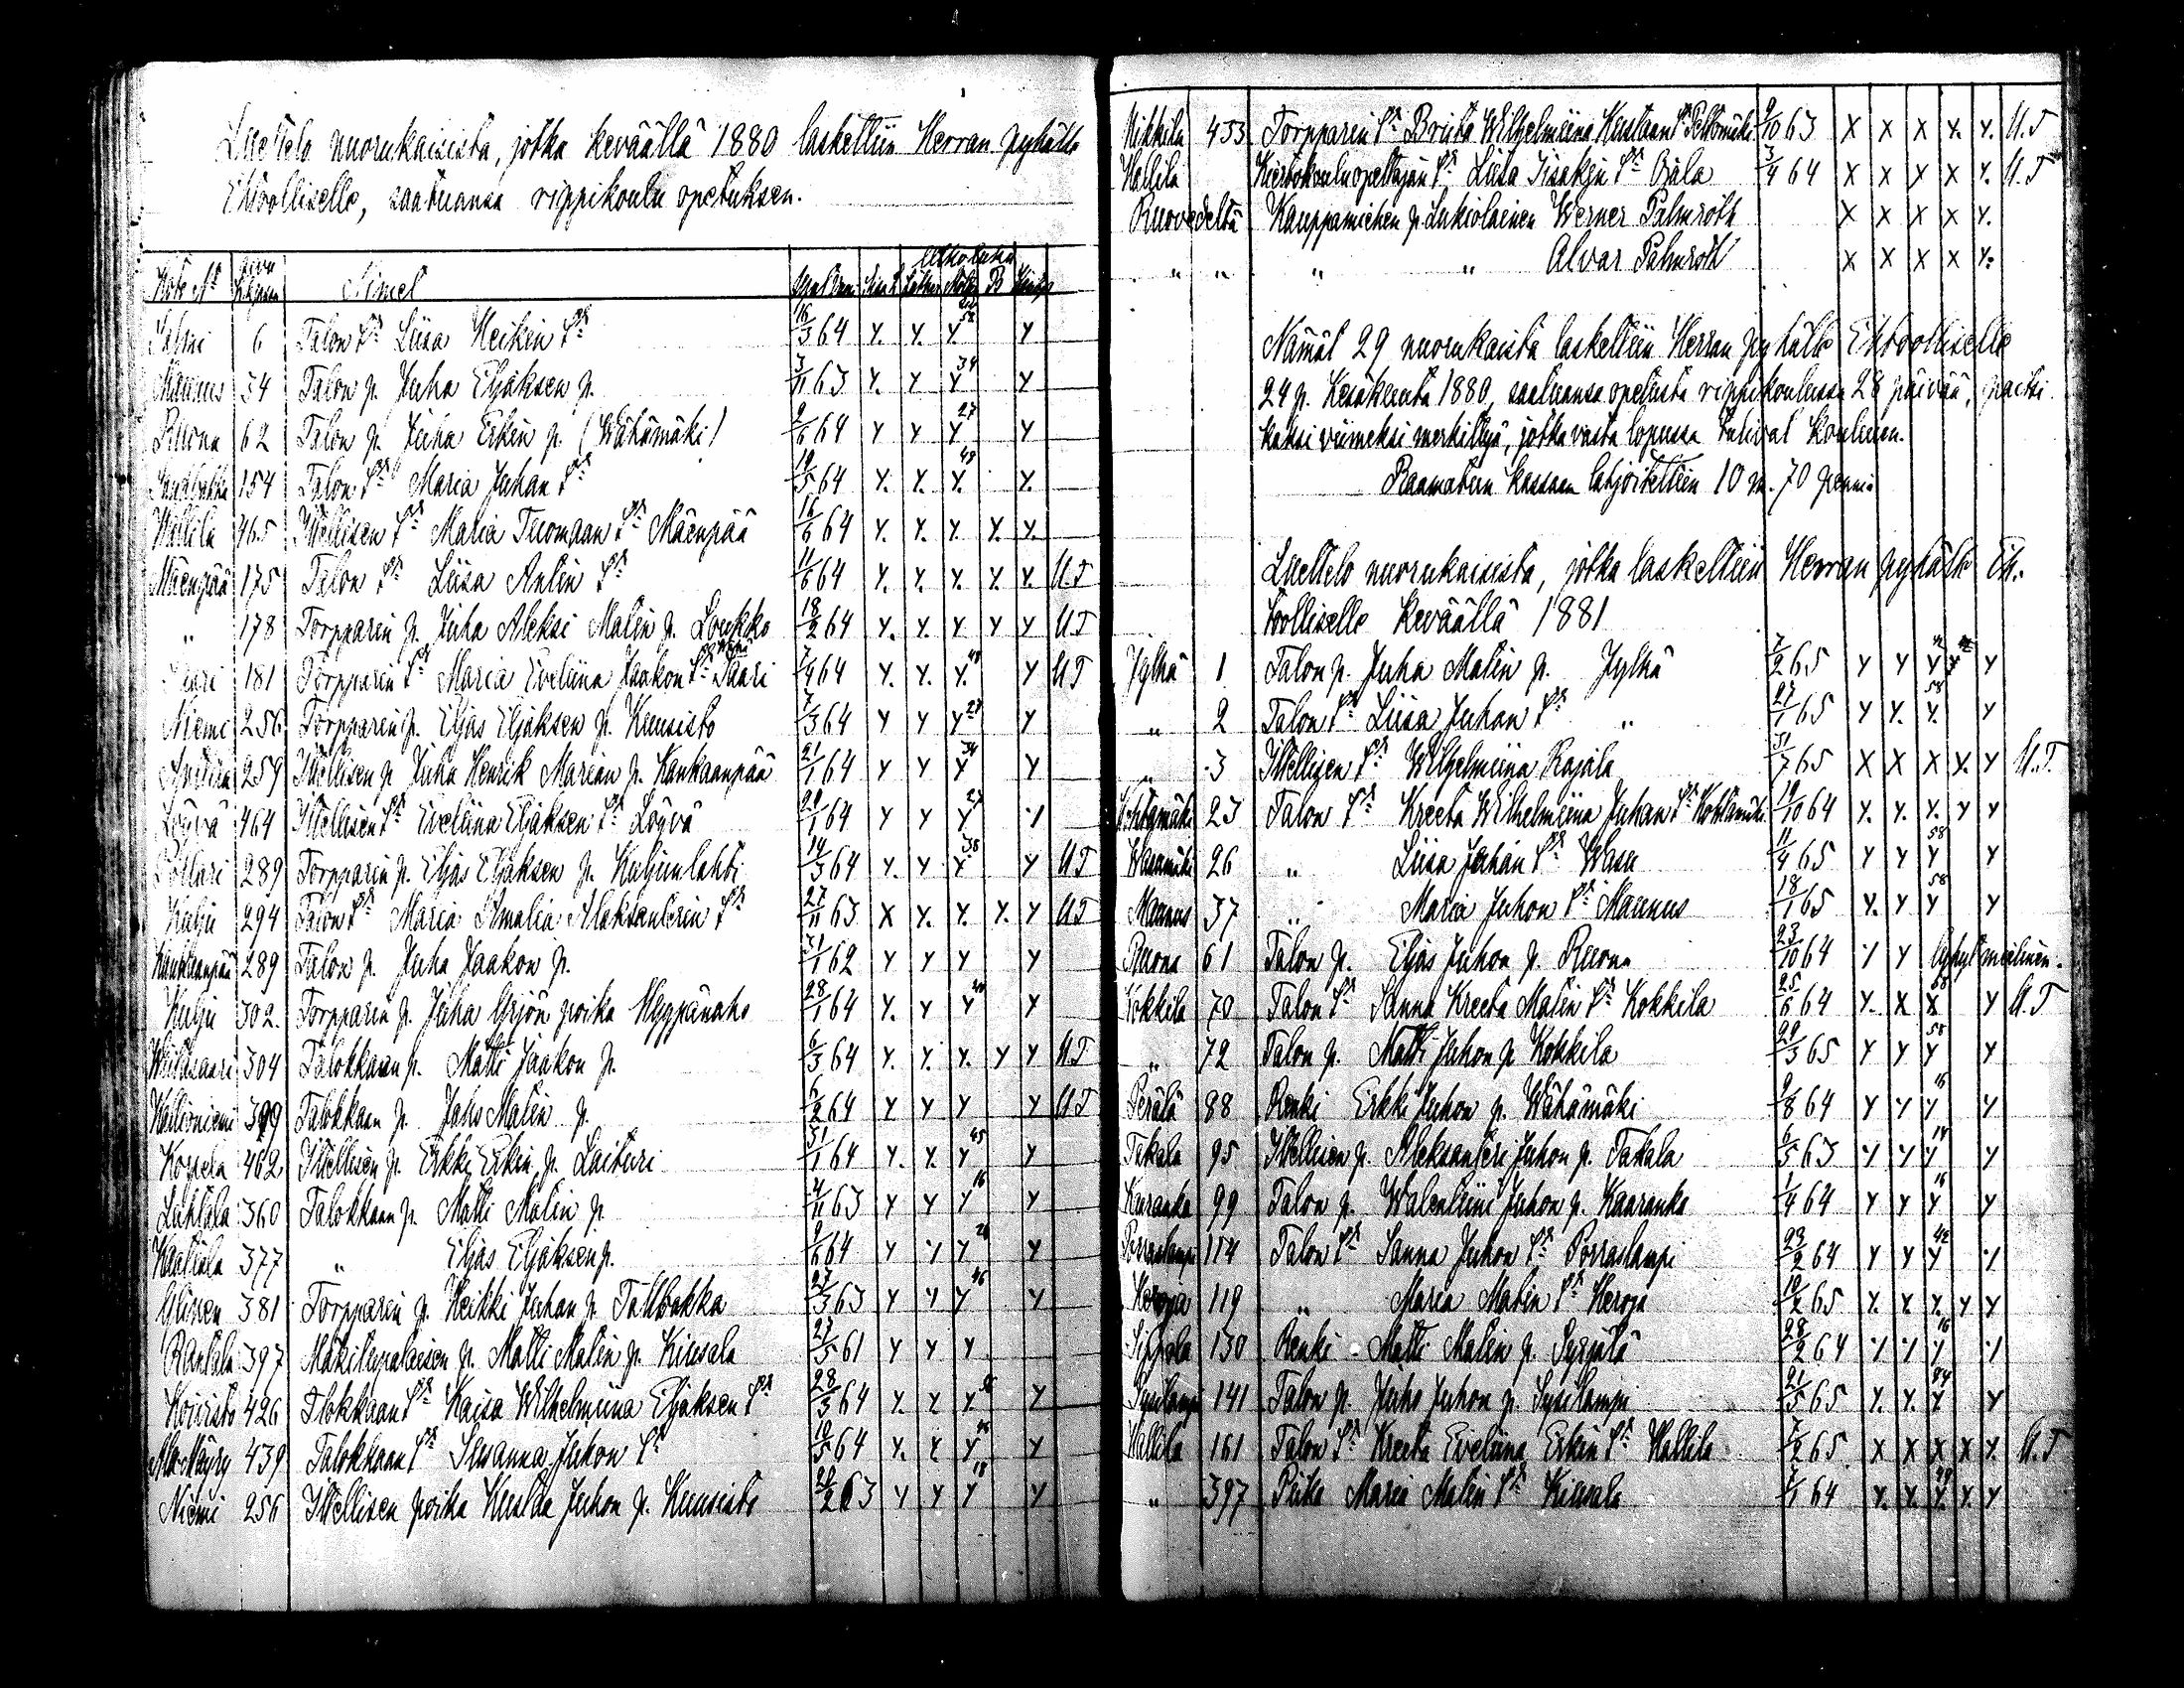 Luettelo nuorukaisista, jotka keväällä 1880 laskettiin Herran pyhälle
Ehtoolliselle, saatuansa rippikoulu opetuksen.
Koto Nimet
6 Talon Liisa Heikin 16/3 64 y. y. y 58 y
Mannus 34 Talon p. Juha Eljaksen p. 3/11 63 y. y y 34 y
Ruona 62 Talon p. Juha Erkin p. (Wähämäki) 9/6 64 y y y 27 y
154 Talon Maria Juhan 19/5 64 y. y. y. 48 y.
Wallila 465 Itellisen Maria Tuomaan Mäenpää 16/6 64 y. y. y. y. y.
Mäenpää 175 Talon Liisa Antin 11/6 64 y. y. y. y. y. U.T
" 178 Torpparin p. Juha Aleksi Matin p. Loukko 18/2 64 y. y. y y y U T
Saari 181 Torpparin Maria Eveliina Jaakon Saari 7/4 64 y. y. y. 48 y U T
Niemi 256 Torpparin p. Eljas Eljaksen p. Kuusisto 7/3 64 y y y 28 y
259 Itellisen p. Juha Henrik Marian p. Kankaanpää 21/1 64 y y y 34 y
Löyvä 464 Itellisen Eveliina Eljaksen Löyvä 29/1 64 y y y 27 y
Pollari 289 Torpparin p. Eljas Eljaksen p. Kuljunlahti 14/3 64 y. y y 38 y U T
Kulju 294 Talon Maria Amalia Aleksanterin 27/11 63 x y. y. y. y U T
Kankaanpää 289 Talon p. Juha Jaakon p. 31/1 62 y y y y
Kulju 302. Torpparin p. Juha Yrjön poika Myypänaho 28/1 64 y. y y y
304 Talokkaan p. Matti Jaakon p. 6/3 64 y. y. y. y y U T
Kallioniemi 399 Talokkaan p. Juho Matin p. 6/2 64 y y y y U T
Kopsela 462 Itellisen p. Erkki Erkin p. Laituri 31/1 64 y. y. y 45 y
Luhtala 360 Talokkaan p. Matti Matin p. 4/11 63 y y y 16 y
377 " Eljas Eljaksen p. 9/6 64 y y y 28 y
Ylinen 381 Torpparin p. Heikki Juhan p. Tallbakka 27/3 63 y y y 46 y
Rantala 397 Mäkitupalaisen p. Matti Matin p. Kiusala 27/5 61 y y y
Koivisto 426 Tlokkaan Kaisa Wilhelmiina Eljaksen 28/3 64 y. y. y. 56 y
439 Talokkaan Susanna Juhon 10/5 64 y. y y 46 y
Niemi 256 Itellisen poika Kustaa Juhon p. Kuusisto 22/2 63 y y y 18 y
Mikkila 453 Torpparin Briita Wilhelmiina Kustaan Peltomäki 9/10 63 x x x x. y. U.T
Wallila Kiertokoulu opettajan Liisa Iisakin Ojala 3/4 64 x x x x y. U.T
Ruovedeltä Kauppamiehen p. Lukiolainen Werner Palmroth x x x x y.
" " " " Alvar Palmroth x x x x y.
Nämät 29 nuorukaista laskettiin Herran pyhälle Ehtoolliselle
24 p. Kesäkuuta 1880, saatuansa opetusta rippikoulussa 28 päivää, paitsi
kaksi viimeksi merkittyä, jotka vasta lopussa tulivat kouluun.
Raamatun kassaan lahjoitettiin 10 m. 70 penniä
Luettelo nuorukaisista, jotka laskettiin Herran pyhälle Eh-
toolliselle keväällä 1881
Jylhä 1 Talon p. Juha Matin p. Jylhä 7/2 65 y y y y y
" 2 Talon Liisa Juhan " 27/1 65 y y. y. 58 y
" 3 Itellisen Wilhelmiina Rajala 31/7 65 x x x x. y U.T.
23 Talon Kreeta Wilhelmiina Juhan Kohtamäki 19/10 64 y. y. y. y y
26 " Liisa Juhan Wasu 11/4 65 y y y 58 y
Mannus 37 " Maria Juhon Mannus 18/1 65 y. y y 58 y
Ruona 61 Talon p. Eljas Juhon p. Ruona 23/10 64 y y lyhytmielinen.
Kokkila 70 Talon Sanna Kreeta Matin Kokkila 25/6 64 y. x x 58 y U.T
" 72 Talon p. Matti Juhon p. Kokkila 29/3 65 y y y 58 y
Perälä 88 Renki Erkki Juhon p. Wähämäki 9/8 64 y y y 16 y
Takala 95 Itellisen p. Aleksanteri Juhon p. Takala 6/5 63 y y y 14 y
Kaaranka 99 Talon p. Walentiini Juhon p. Kaaranka 1/4 64 y y y 16 y
Porraslampi 114 Talon Sanna Juhon Porraslampi 23/2 64 y y y 42 y
Heroja 119 " Maria Matin Heroja 10/2 65 y. y. y. y y
Sippola 130 Renki Matti Matin p. Syrjälä 28/2 64 y y y 16 y
Sysilampi 141 Talon p. Juho Juhon p. Sysilampi 21/5 65 y. y. y 24 y
Wallila 161 Talon Kreeta Eveliina Erkin Wallila 7/2 65 x x x x y. U.T
" 397 Piika Maria Matin Kiusala 7/1 64 y. y. y. 49 y. y